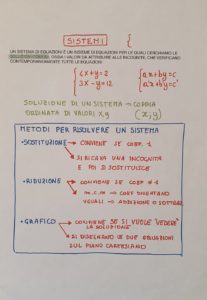 SISTEMI
UN SISTEMA DI EQUAZIONI È UN INSIEME DI EQUAZIONI PER LE QUALI CERCHIAMO LE
SOLUZIONI COMUNI, OSSIA I VALORI DA ATTRIBUIRE ALLE INCOGNITE, CHE VERIFICANO
CONTEMPORANEAMENTE TUTTE LE EQUAZIONI
{ 4x+y=2 { ax+by=c
3x-y=12 a'x+b'y=c'
SOLUZIONE DI UN SISTEMA → COPPIA
ORDINATA DI VALORI x,y (x,y)
METODI PER RISOLVERE UN SISTEMA
•SOSTITUZIONE → CONVIENE SE COEF. 1
→ SI RICAVA UNA INCOGNITA
E POI SI SOSTITUISCE
•RIDUZIONE → CONVIENE SE COEF ≠1
→ m.c.m → COEF DIVENTANO
UGUALI → ADDIZIONE O SOTTRAZ.
•GRAFICO → CONVIENE SE SI VUOLE "VEDERE"
LA SOLUZIONE
→ SI DISEGNANO LE DUE EQUAZIONI
SUL PIANO CARTESIANO